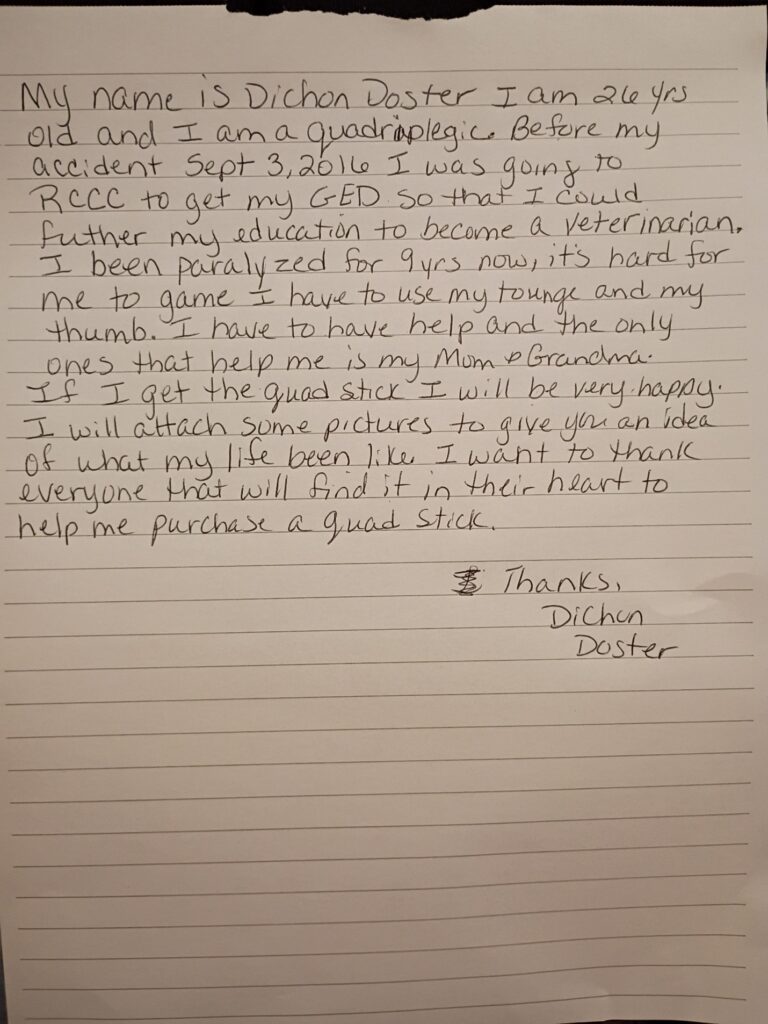 My name is Dichon Doster I am 26 yrs
old and I am a quadriplegic. Before my
accident Sept 3, 2016 I was going to
RCCC to get my GED so that I could
futher my education to become a veterinarian.
I been paralyzed for 9 yrs now, it's hard for
me to game I have to use my tounge and my
thumb. I have to have help and the only
ones that help me is my Mom & Grandma.
If I get the quad stick I will be very happy.
I will attach some pictures to give you an idea
of what my life been like I want to thank
everyone that will find it in their heart to
help me purchase a quad stick.
Thanks,
Dichon
Doster